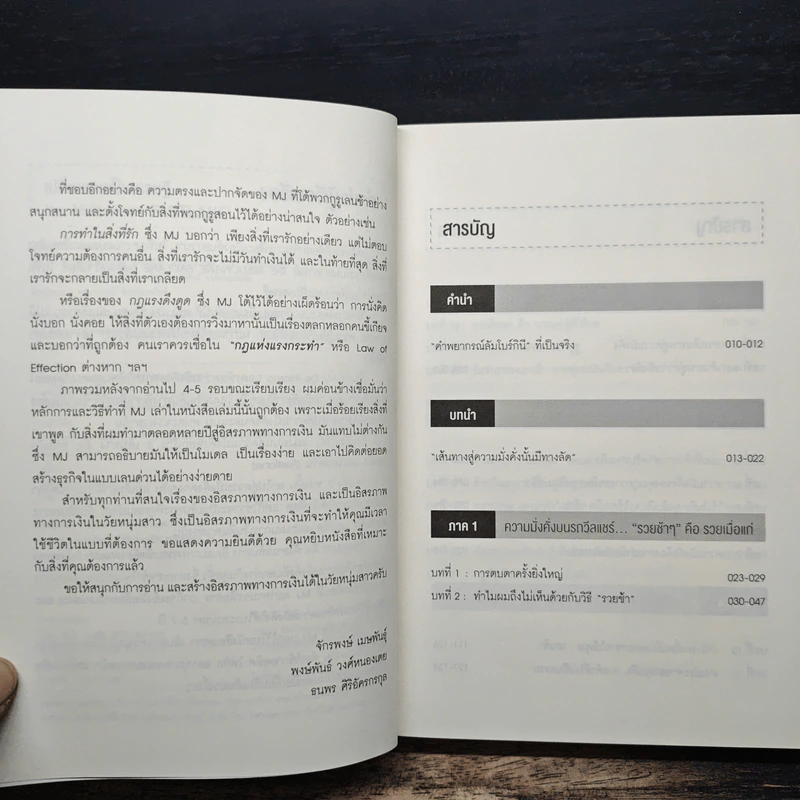 ที่ชอบอีกอย่างคือ ความตรงและปากจัดของ MJ ที่โต้พวกกูรูเลนช้าอย่าง
สนุกสนาน และตั้งโจทย์กับสิ่งที่พวกกูรูสอนไว้ได้อย่างน่าสนใจ ตัวอย่างเช่น
การทำในสิ่งที่รัก ซึ่ง MJ บอกว่า เพียงสิ่งที่เรารักอย่างเดียว แต่ไม่ตอบ
โจทย์ความต้องการคนอื่น สิ่งที่เรารักจะไม่มีวันทำเงินได้ และในท้ายที่สุด สิ่งที่
เรารักจะกลายเป็นสิ่งที่เราเกลียด
หรือเรื่องของ กฎแรงดึงดูด ซึ่ง MJ โต้ไว้ได้อย่างเผ็ดร้อนว่า การนั่งคิด
นั่งบอก นั่งคอย ให้สิ่งที่ตัวเองต้องการวิ่งมาหานั้นเป็นเรื่องตลกหลอกคนขี้เกียจ
และบอกว่าที่ถูกต้อง คนเราควรเชื่อใน "กฎแห่งแรงกระทำ" หรือ Law of
Effection ต่างหาก ฯลฯ
ภาพรวมหลังจากอ่านไป 4-5 รอบขณะเรียบเรียง ผมค่อนข้างเชื่อมั่นว่า
หลักการและวิธีทำที่ MJ เล่าในหนังสือเล่มนี้นั้นถูกต้อง เพราะเมื่อร้อยเรียงสิ่งที่
เขาพูด กับสิ่งที่ผมทำมาตลอดหลายปีสู่อิสรภาพทางการเงิน มันแทบไม่ต่างกัน
ซึ่ง MJ สามารถอธิบายมันให้เป็นโมเดล เป็นเรื่องง่าย และเอาไปคิดต่อยอด
สร้างธุรกิจในแบบเลนด่วนได้อย่างง่ายดาย
สำหรับทุกท่านที่สนใจเรื่องของอิสรภาพทางการเงิน และเป็นอิสรภาพ
ทางการเงินในวัยหนุ่มสาว ซึ่งเป็นอิสรภาพทางการเงินที่จะทำให้คุณมีเวลา
ใช้ชีวิตในแบบที่ต้องการ ขอแสดงความยินดีด้วย คุณหยิบหนังสือที่เหมาะ
กับสิ่งที่คุณต้องการแล้ว
ขอให้สนุกกับการอ่าน และสร้างอิสรภาพทางการเงินได้ในวัยหนุ่มสาวครับ
จักรพงษ์ เมษพันธุ์
พงษ์พันธ์ วงศ์หนองเตย
ธนพร ศิริอัครกรกุล
สารบัญ
คำนำ
"คำพยากรณ์ลัมโบร์กินี" ที่เป็นจริง 010-012
บทนำ
"เส้นทางสู่ความมั่งคั่งนั้นมีทางลัด" 013-022
ภาค 1 ความมั่งคั่งบนรถวีลแชร์... "รวยช้าๆ" คือ รวยเมื่อแก่
บทที่ 1 : การตบตาครั้งยิ่งใหญ่ 023-029
บทที่ 2 : ทำไมผมถึงไม่เห็นด้วยกับวิธี "รวยช้า" 030-047